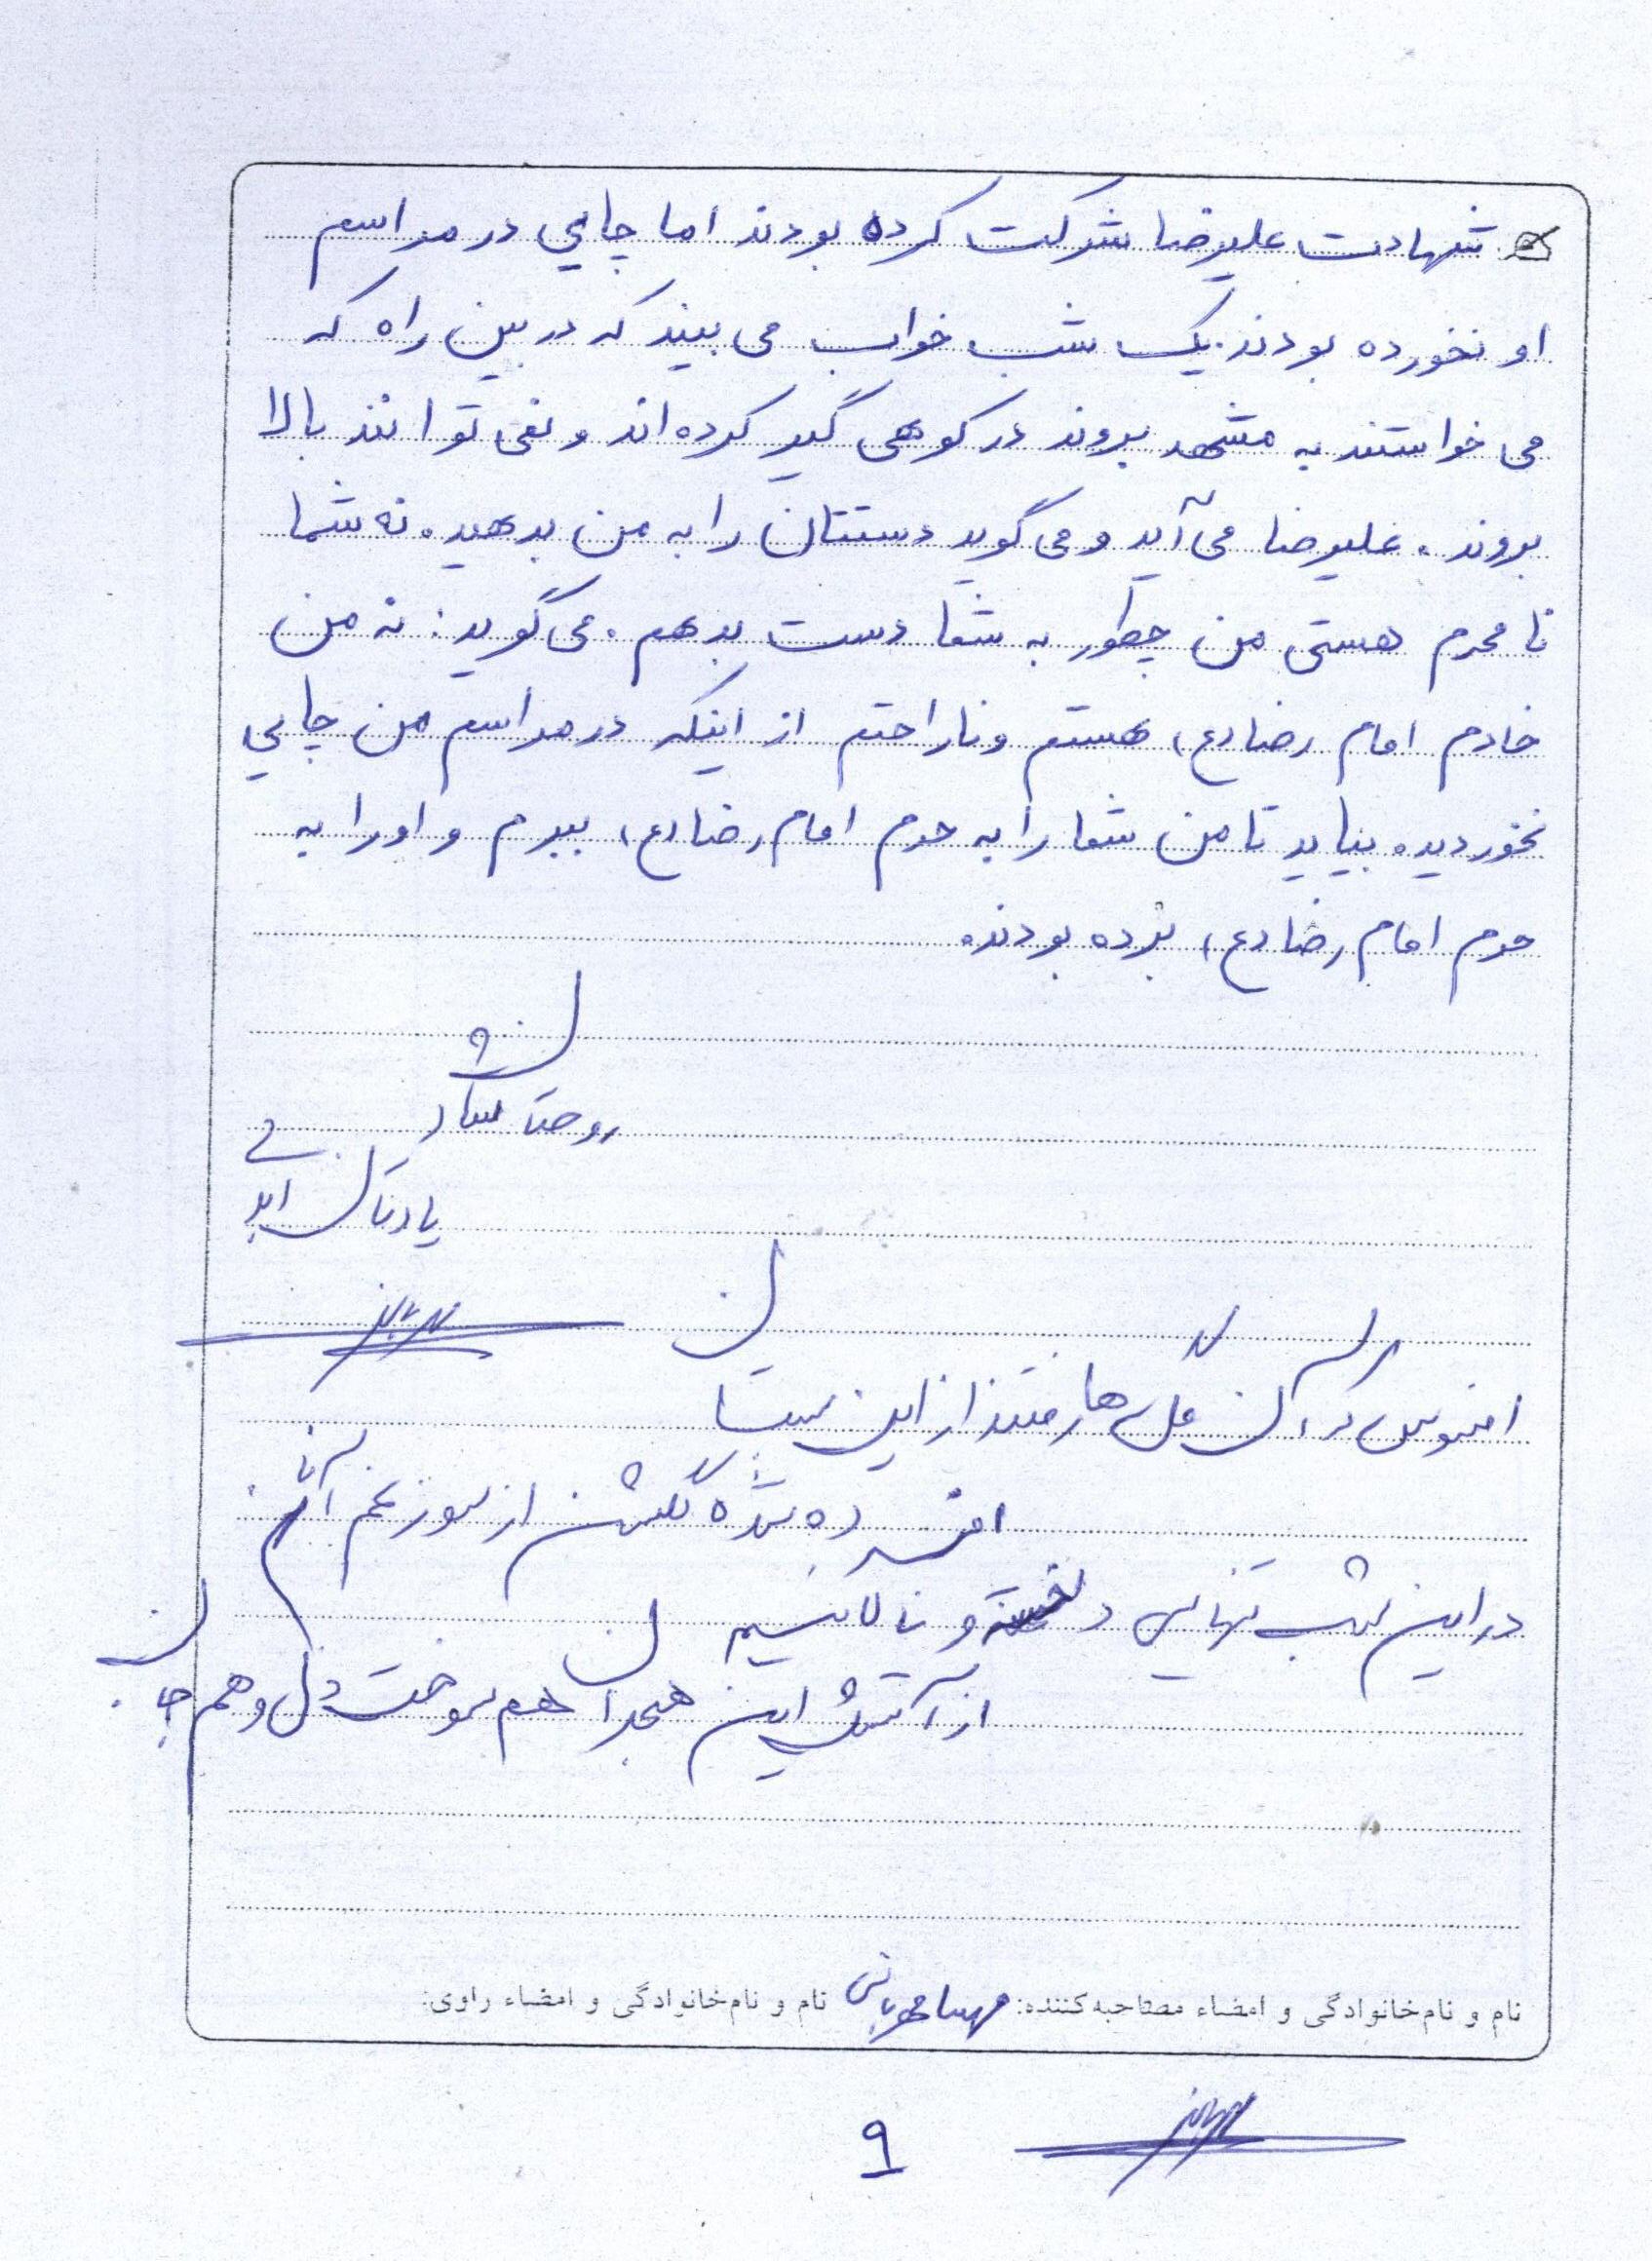 شهادت علیرضا شرکت کرده بودند اما چایی در مراسم
او نخورده بودند. یک شب خواب می بیند که در بین راه که
می خواستند به مشهد بروند در کوهی گیر کرده اند و نمی توانند بالا
بروند. علیرضا می آید و می گوید دستتان را به من بدهید. نه شما
نامحرم هستی من چطور به شما دست بدهم. می گوید: نه من
خادم امام رضا (ع) هستم و ناراحتم از اینکه در مراسم من چایی
نخوردید. بیایید تا من شما را به حرم امام رضا (ع) ببرم و او را به
حرم امام رضا (ع) برده بودند.
روحتان شاد
یادتان ابدی
افسوس که آن گل ها رفتند از این بستان
افسرده شده گلشن از سوز غم آنان
در این شب تنهایی و نالانیم
از آتش این هجران هم سوخت دل و هم جان
نام و نام‌خانوادگی و امضاء مصاحبه‌کننده: مهسا مهربانی نام و نام‌خانوادگی و امضاء راوی:
۹